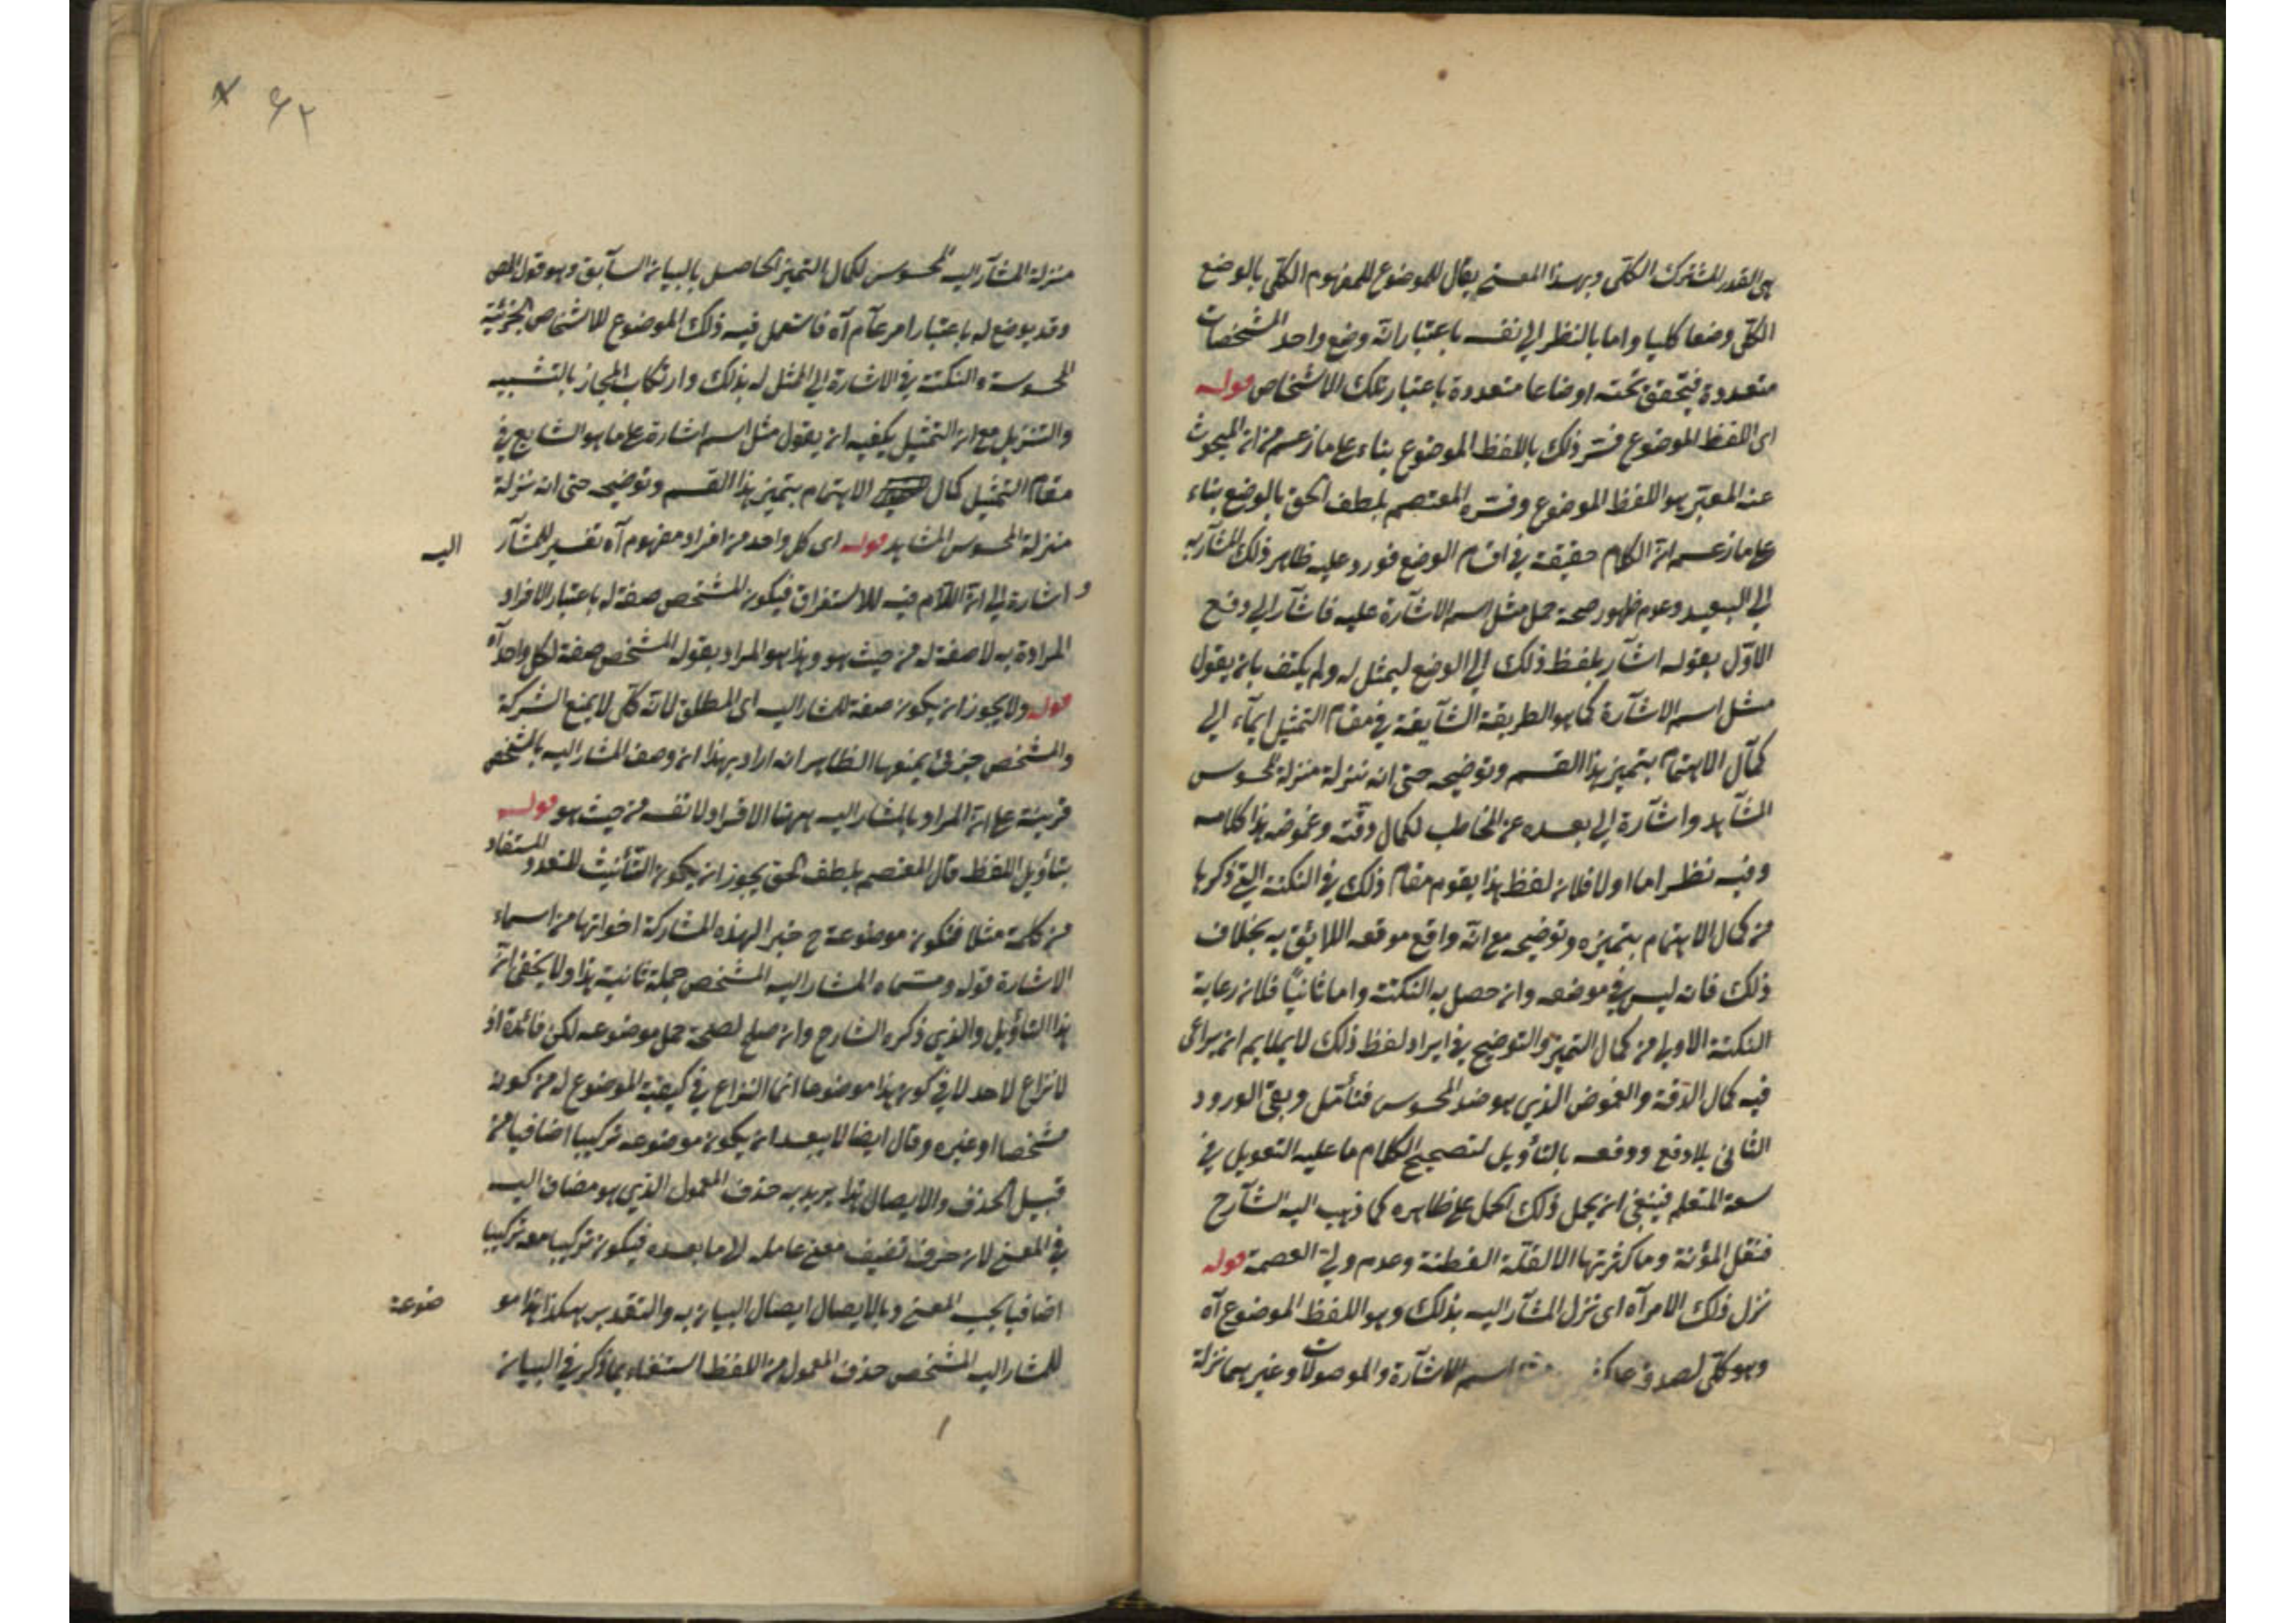 هى القدر المشترك الكلى وبهذا المعنى يقال للموضوع للمفهوم الكلى بالوضع
الكلى وضعا كليا واما بالنظر الى نفسه باعتبار انه وضع واحد المشخصات
متعددة فيتحقق تحته اوضاعا متعددة باعتبار تلك الاشخاص قوله
اى اللفظ الموضوع فسر ذلك باللفظ الموضوع بناء على ما زعم من ان المبحوث
عنه المعتبر هو اللفظ الموضوع وفسره المعتصم بلطف الحق بالوضع بناء
على ما زعم ان الكلام حقيقة فى اقسام الوضع فورد عليه ظاهر ذلك المشاربه
الى البعيد وعدم ظهور صحة حمل مثل اسم الاشارة عليه فاشار الى دفع
الاول بقوله اشار بلفظ ذلك الى الوضع ليمثل له ولم يكتف بان يقول
مثل اسم الاشارة كما هو الطريقة الشايعة فى مقام التمثيل ايماء الى
كمال الاهتمام بتميز هذا القسم وتوضيحه حتى انه نزله منزلة المحسوس
المشاهد واشارة الى بعده عن المخاطب لكمال دقته وغموضه هذا كلامه
وفيه نظر اما اولا فلان لفظ هذا يقوم مقام ذلك فى النكتة التى ذكرها
من كمال الاهتمام بتميزه وتوضيحه مع انه واقع موقعه اللايق به بخلاف
ذلك فانه ليس فى موضعه وان حصل به النكتة واما ثانيا فلان رعاية
النكتة الاولى من كمال التميز والتوضيح فى ايراد لفظ ذلك لا يلايم ان يراعى
فيه كمال الدقة والغموض الذى هو ضد المحسوس فتأمل وبقى الورود
الثانى بلا دفع ودفعه بالتأويل لتصحيح الكلام ما عليه التعويل فى
سعة المتعلم فينبغى ان يحمل ذلك الحمل على ظاهره كما ذهب اليه الشارح
فتقل المؤنة وما كثرتها الا لقلة الفطنة وعدم ولى العصمة قوله
نزل ذلك الامر آه اى نزل المشار اليه بذلك وهو اللفظ الموضوع آه
وهو كلى لصدقه على اسم الاشارة والموصولات وغيرهما نزله
۶۲
منزلة المشار اليه المحسوس لكمال التميز الحاصل بالبيان السابق وهو قول المص
وقد يوضع له باعتبار امر عام آه فاستعمل فيه ذلك الموضوع للاشخاص الجزئية
المحسوسة والنكتة فى الاشارة الى الممثل له بذلك وارتكاب المجاز بالتشبيه
والتنزيل مع ان التمثيل يكفيه ان يقول مثل اسم اشارة على ما هو الشايع فى
مقام التمثيل كمال الاهتمام بتميز هذا القسم وتوضيحه حتى انه نزله
منزلة المحسوس المشاهد قوله اى كل واحد من افراد مفهوم آه تفسير للمشار اليه
واشارة الى ان اللام فيه للاستغراق فيكون المشخص صفة له باعتبار الافراد
المرادة به لا صفة له من حيث هو وهذا هو المراد بقوله المشخص صفة لكل واحد آه
قوله ولا يجوز ان يكون صفة للمشار اليه اى المطلق لانه كلى لا يمنع الشركة
والمشخص جزئى يمنعها الظاهر انه اراد بهذا ان وصف المشار اليه بالمشخص
قرينة على ان المراد بالمشار اليه ههنا الافراد لا نفسه من حيث هو قوله
بتأويل اللفظ قال المعتصم بلطف الحق يجوز ان يكون التأنيث للتعدد المستفاد
من كلمة مثلا فتكون موضوعة ح خبر الهذه المشاركة اخواتها من اسماء
الاشارة قوله ومسماه المشار اليه المشخص جملة ثانية هذا ولا يخفى ان
هذا التأويل والذى ذكره الشارح وان صلح لصحة حمل موضوعه لكن فائدة اذ
لا نزاع لاحد لا فى كون هذا موضوعا انما النزاع فى كيفية الموضوع له من كونه
مشخصا او غيره وقال ايضا لا يبعد ان يكون موضوعه تركيبا اضافيا من
قبيل الحذف والايصال هذا يريد به حذف المعمول الذى هو مضاف اليه
فى المعنى لان حرف تضيف معنى عامله لما بعده فيكون تركيبا معه تركيبا
اضافيا بحسب المعنى وبالايصال ايصال البيان به والتقدير هكذا هذا مو ضوعة
للمشار اليه المشخص حذف المعمول من اللفظ استغناء بما ذكر فى البيان